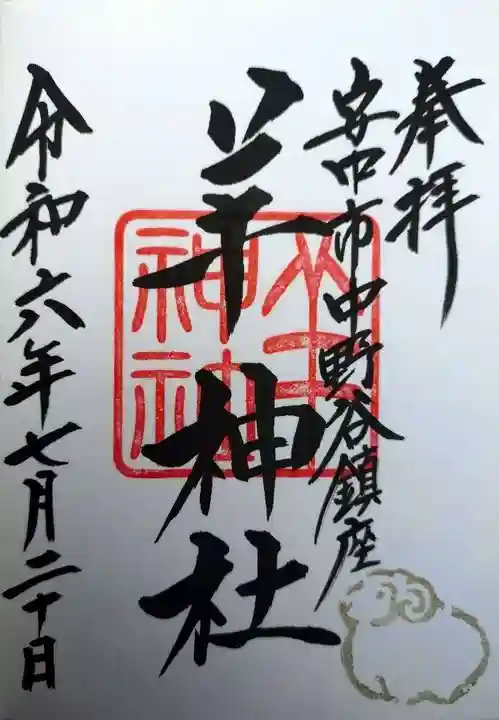 奉拝
安中市中野谷鎮座
羊神社
令和六年七月二十日
羊神社